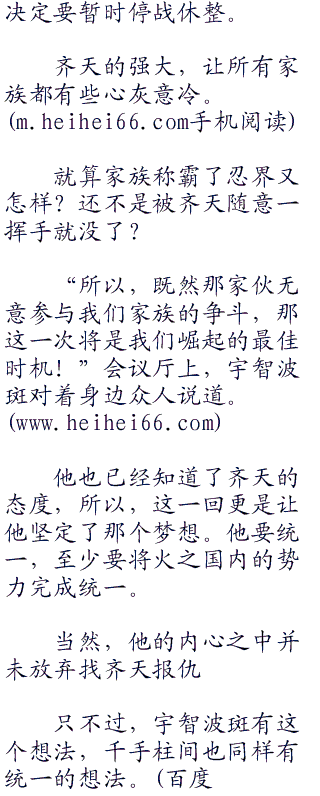 决定要暂时停战休整。
齐天的强大，让所有家
族都有些心灰意冷。
(m.heihei66.com手机阅读)
就算家族称霸了忍界又
怎样？还不是被齐天随意一
挥手就没了？
“所以，既然那家伙无
意参与我们家族的争斗，那
这一次将是我们崛起的最佳
时机！”会议厅上，宇智波
斑对着身边众人说道。
(www.heihei66.com)
他也已经知道了齐天的
态度，所以，这一回更是让
他坚定了那个梦想。他要统
一，至少要将火之国内的势
力完成统一。
当然，他的内心之中并
未放弃找齐天报仇
只不过，宇智波斑有这
个想法，千手柱间也同样有
统一的想法。(百度